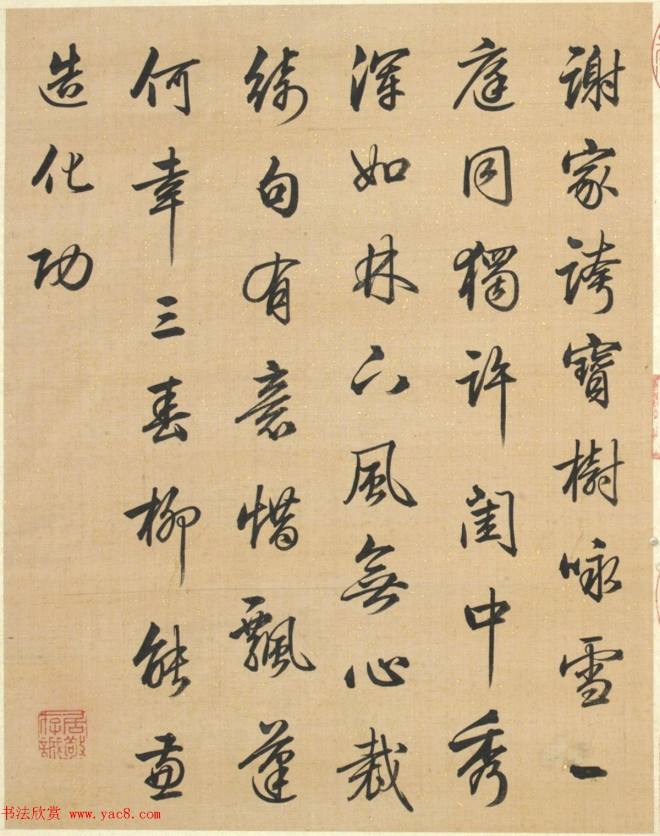 謝家誇寶樹咏雪一
庭同獨許閨中秀
深如林下風無心裁
綺句有意惜飄蓬
何幸三春柳能
造化功
居敬存誠
书法欣赏 www.yac8.com